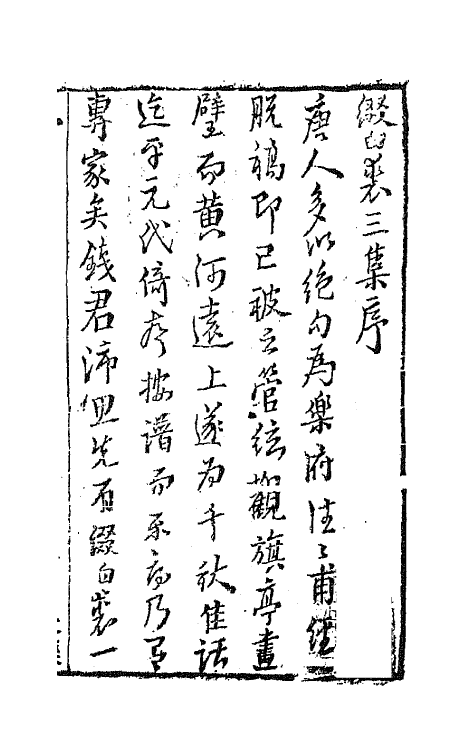 綴白裘三集序
唐人多以絕句為樂府往々甫經
脫稿即已被之管絃如觀旗亭畫
壁而黃河遠上遂為千秋佳話
迄乎元代倚聲按譜而系而乃有
專家矣錢君沛思先有綴白裘一